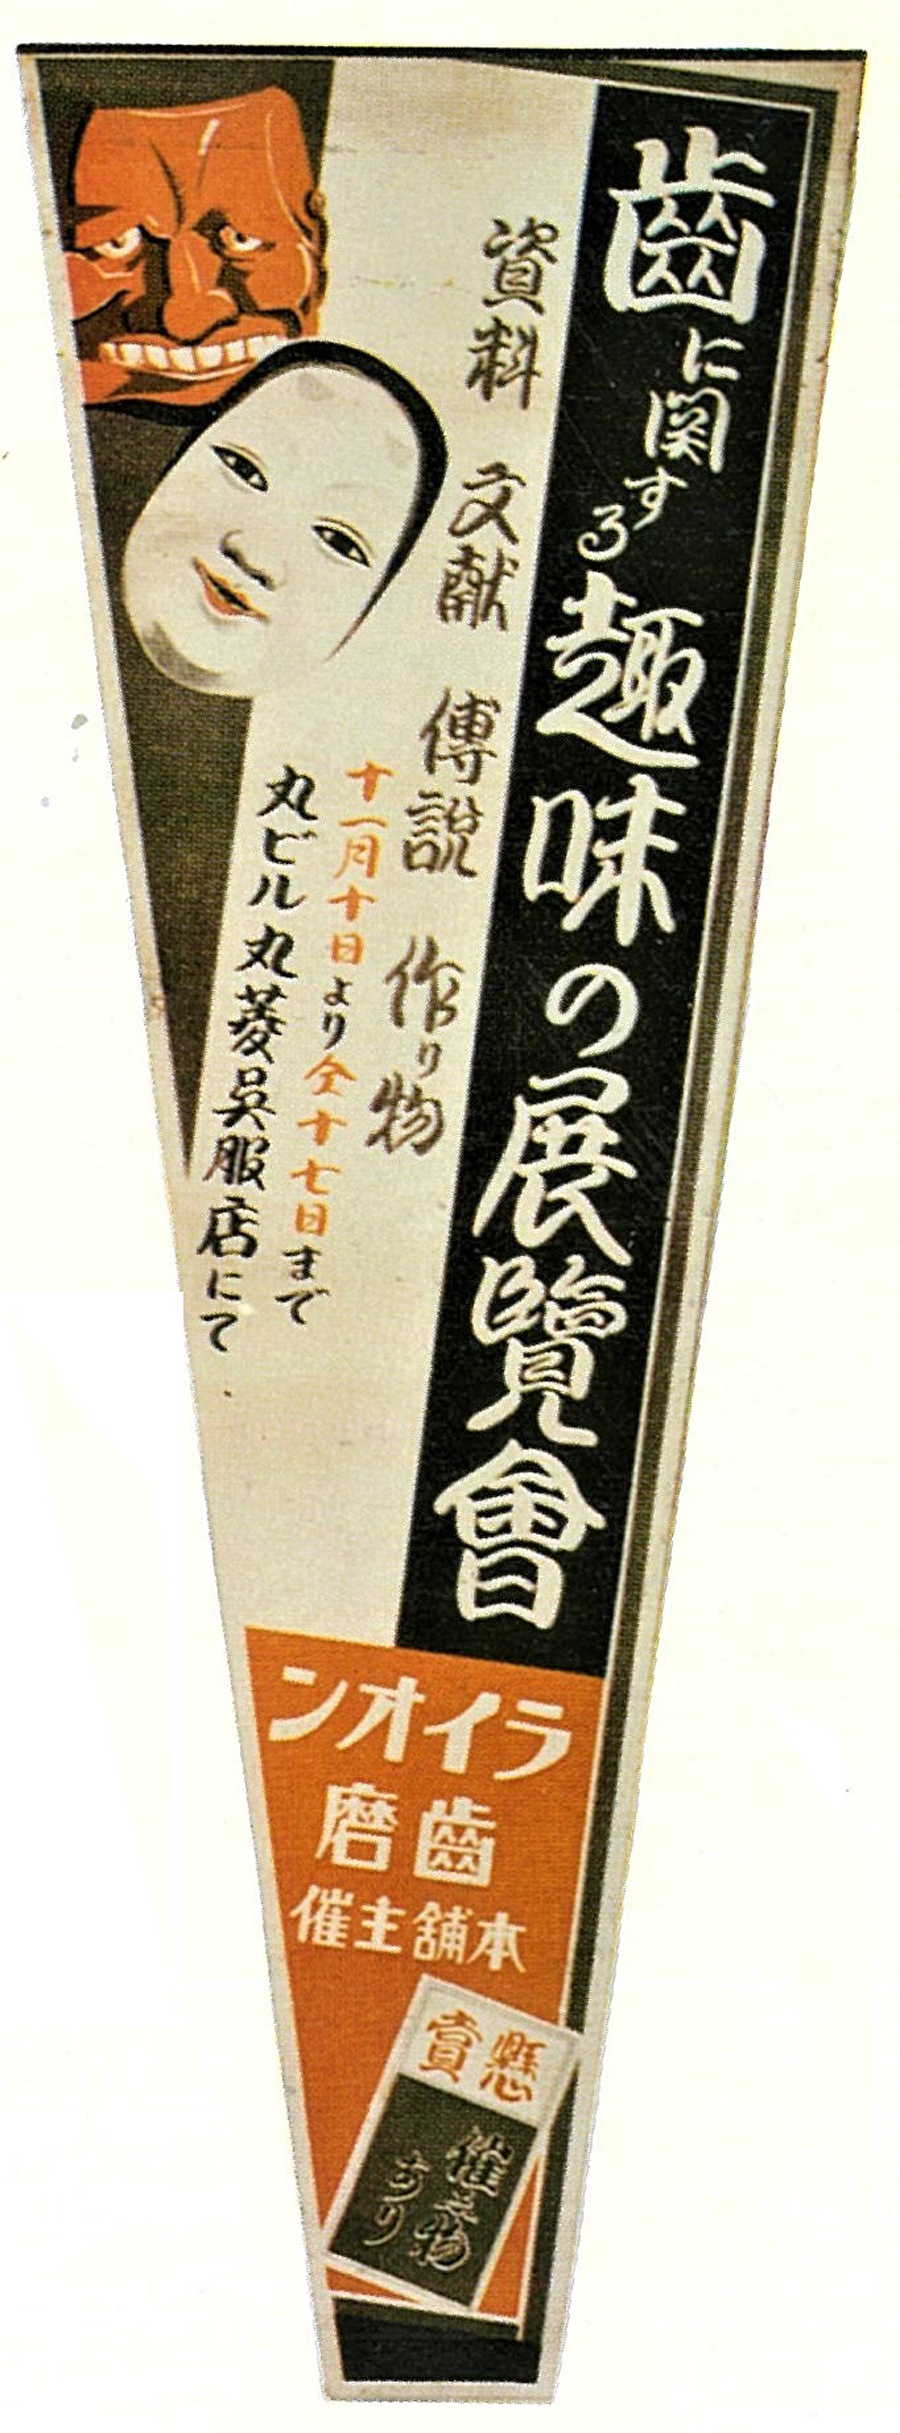 齒に関する趣味の展覽會
資料 文献 傳説 作り物
十一月十日より仝十七日まで
丸ビル丸菱呉服店にて
ライオン
齒磨
本舗主催
懸賞
催し物
あり